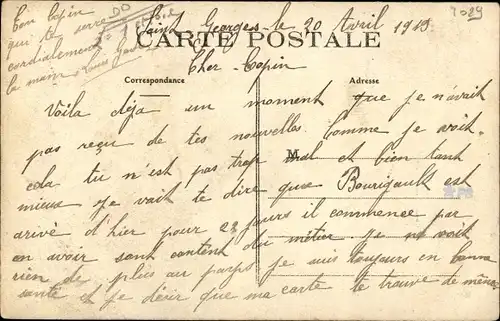 Saint Georges le 20 Avril 1913
CARTE POSTALE
Correspondance
Adresse
Cher Copin
Voila deja un moment que je n'avait
pas reçu de tes nouvelles. Comme je voit
cela tu n'est pas trop mal et bien tant
M
mieux. Je vait te dire que Bourigault est
arivé d'hier pour 22 jours il commence par
en avoir sont content du métier. Je ne voit
rien de plus au parps je suis toujours en bonne
santé et je désir que ma carte te trouve de même
Ton Copin
qui te serre
cordialement
la main